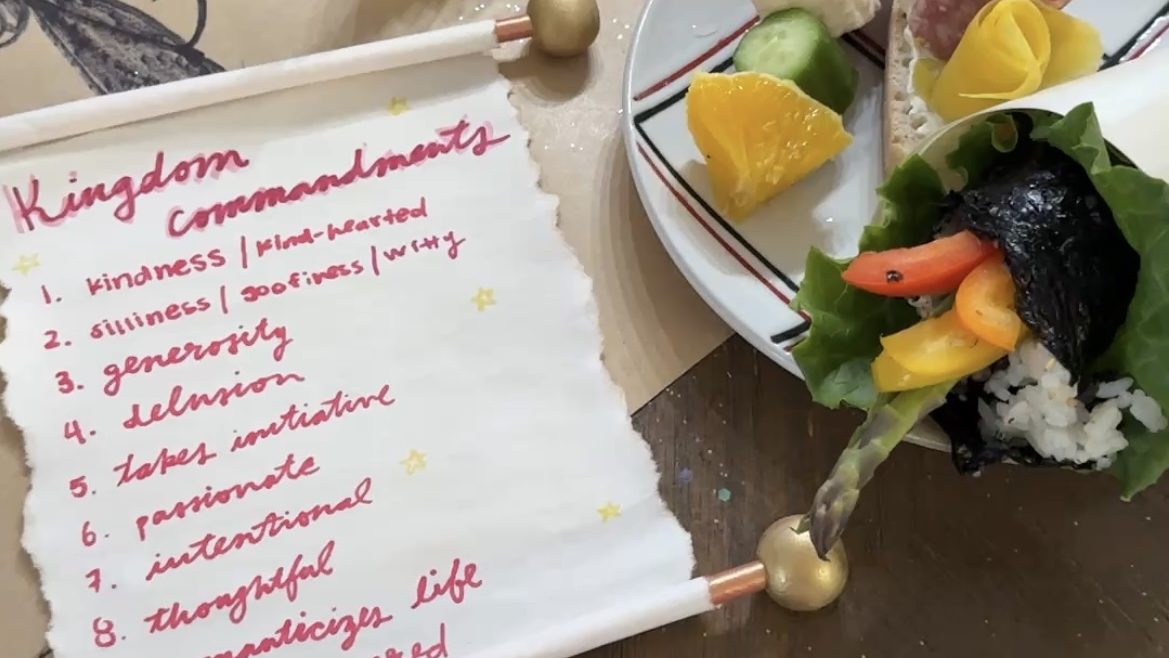 Kingdom
commandments
1. kindness / kind-hearted
2. silliness / goofiness / witty
3. generosity
4. delusion
5. takes initiative
6. passionate
7. intentional
8. thoughtful
life